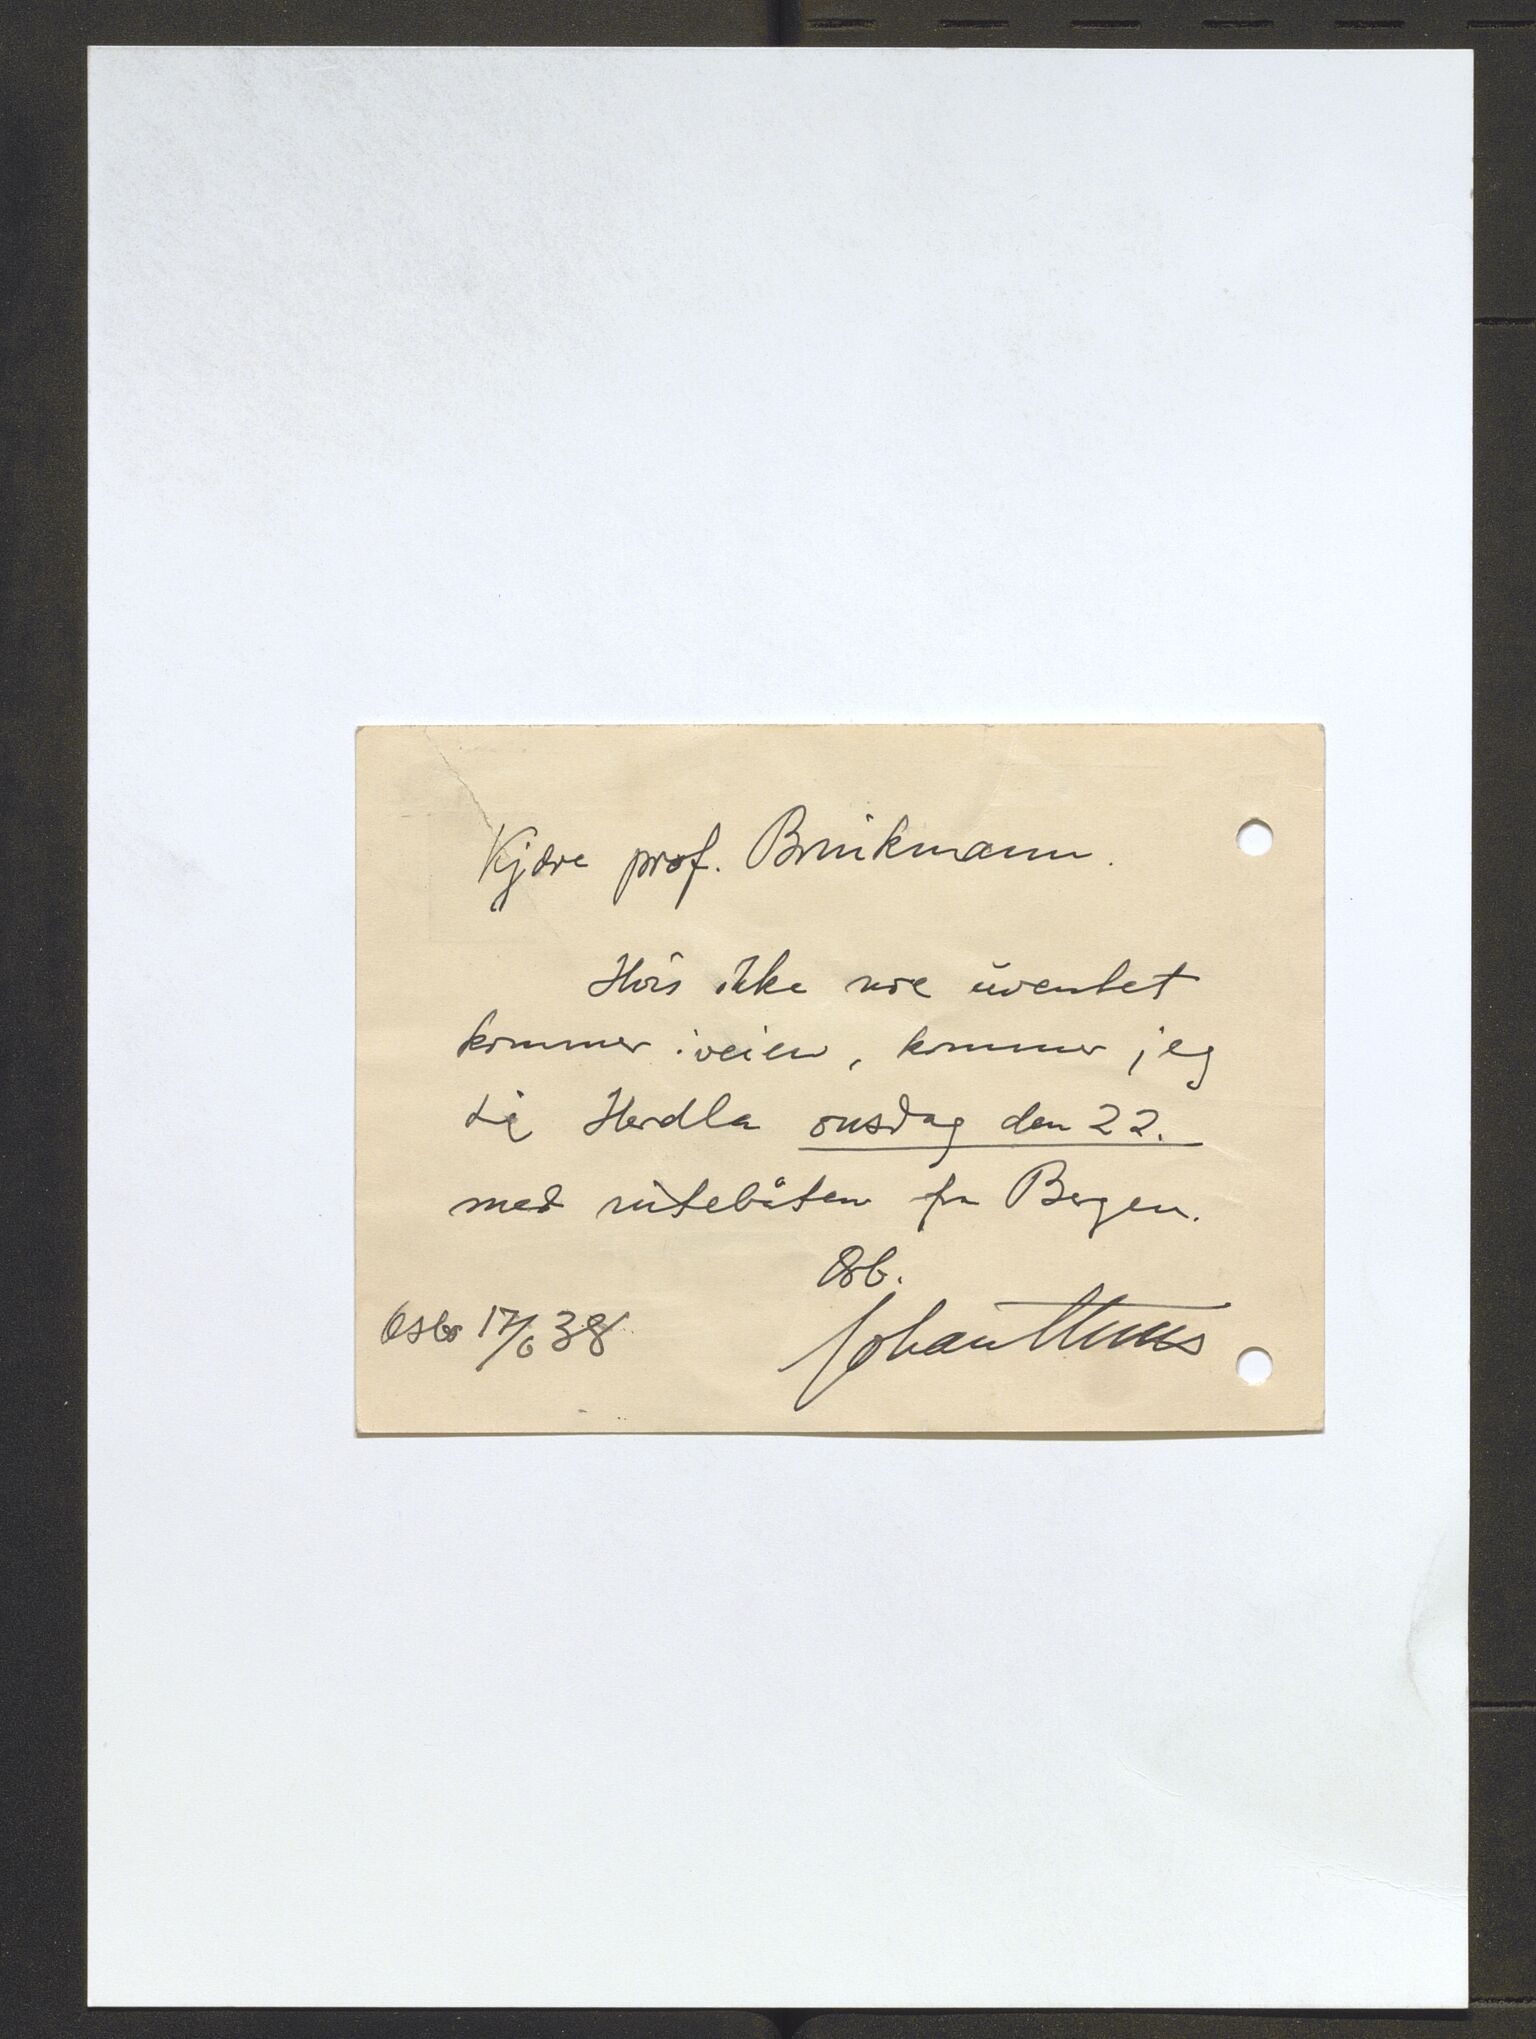 Kjære prof. Brinkmann.
Hvis ikke noe uventet
kommer i veien, kommer jeg
til Herdla onsdag den 22.
med rutebåten fra Bergen.
Ærb.
Oslo 17/6 38
Johan